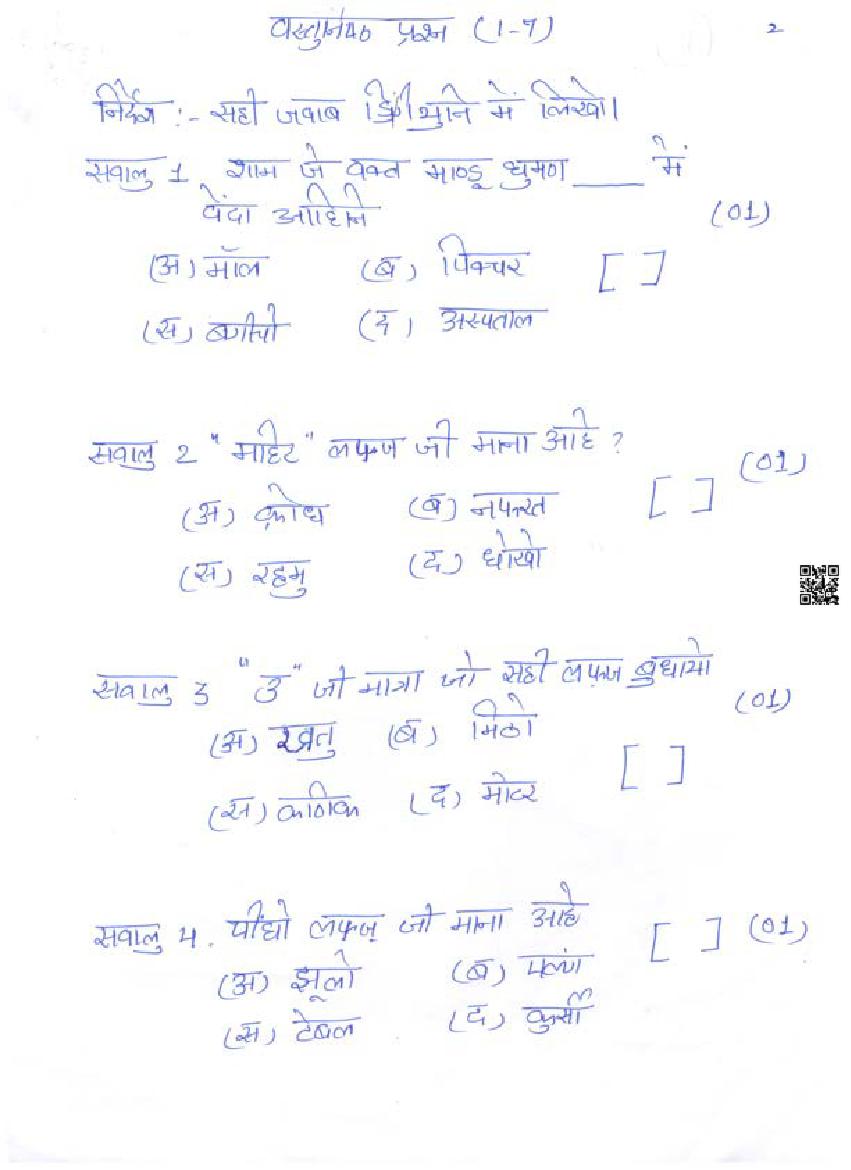 वस्तुनिष्ठ प्रश्न (1-7) 2
निर्देश :- सही जवाब डि॒ंगी भुनि में लिखो।
सवालु 1 शाम जे वक्त माण्हू घुमण ____ में
वेंदा आहिनि (01)
(अ) मॉल (ब) पिक्चर [ ]
(स) बगीचो (द) अस्पताल
सवालु 2 "माहेट" लफ़्ज जी माना आहे ? (01)
(अ) क्रोध (ब) नफरत [ ]
(स) रहमु (द) धोखो
सवालु 3 "उ" जी मात्रा जो सही लफ़्ज बुधायो (01)
(अ) खतु (ब) मिठो [ ]
(स) कणिक (द) मोटर
सवालु 4. पींघो लफ़्ज़ जी माना आहे [ ] (01)
(अ) झूलो (ब) पलंग
(स) टेबल (द) कुर्सी